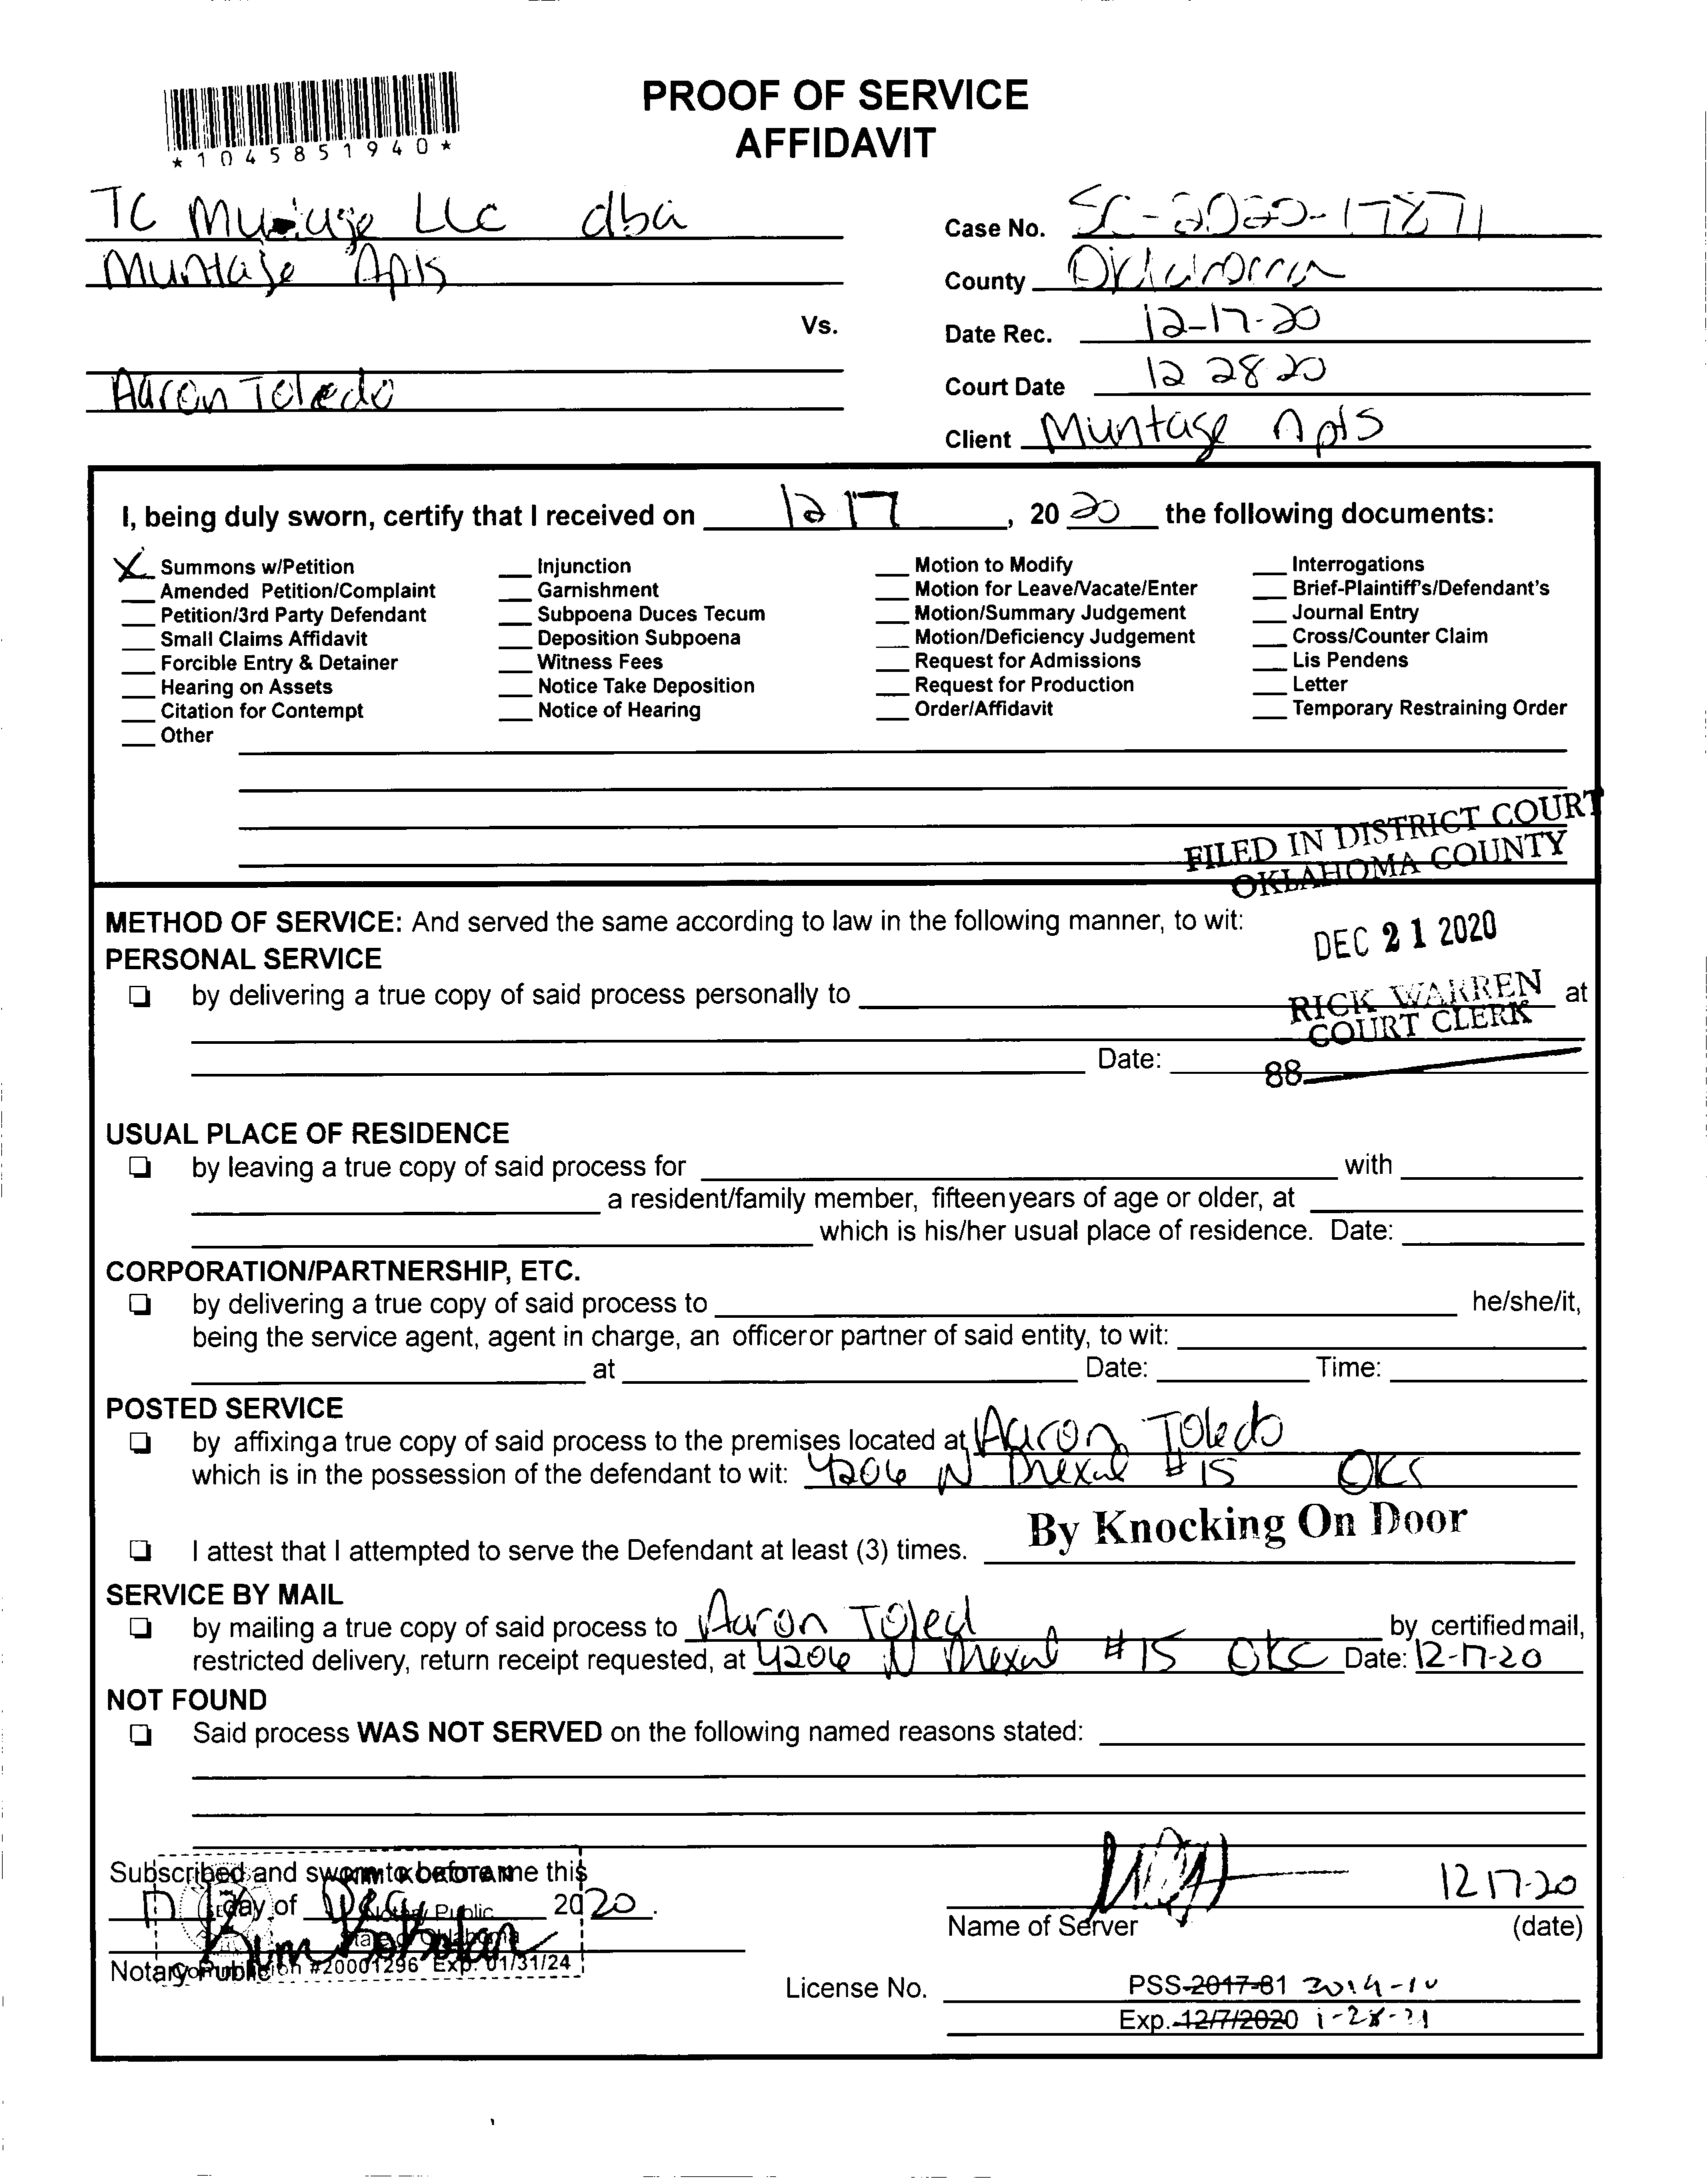 PROOF OF SERVICE
AFFIDAVIT
*1045851940*
TC LLC dba
Muntage Apts
Vs.
Aaron Toledo
Case No. SC-2020-17871
County Oklahoma
Date Rec. 12-17-20
Court Date 12 28 20
Client Muntage Apts
I, being duly sworn, certify that I received on 12 17, 20 20 the following documents:
X Summons w/Petition
Amended Petition/Complaint
Petition/3rd Party Defendant
Small Claims Affidavit
Forcible Entry & Detainer
Hearing on Assets
Citation for Contempt
Other
Injunction
Garnishment
Subpoena Duces Tecum
Deposition Subpoena
Witness Fees
Notice Take Deposition
Notice of Hearing
Motion to Modify
Motion for Leave/Vacate/Enter
Motion/Summary Judgement
Motion/Deficiency Judgement
Request for Admissions
Request for Production
Order/Affidavit
Interrogations
Brief-Plaintiff's/Defendant's
Journal Entry
Cross/Counter Claim
Lis Pendens
Letter
Temporary Restraining Order
FILED IN DISTRICT COURT
OKLAHOMA COUNTY
DEC 21 2020
RICK WARREN
COURT CLERK
88
METHOD OF SERVICE: And served the same according to law in the following manner, to wit:
PERSONAL SERVICE
by delivering a true copy of said process personally to at
Date:
USUAL PLACE OF RESIDENCE
by leaving a true copy of said process for with
a resident/family member, fifteen years of age or older, at
which is his/her usual place of residence. Date:
CORPORATION/PARTNERSHIP, ETC.
by delivering a true copy of said process to he/she/it,
being the service agent, agent in charge, an officer or partner of said entity, to wit:
at Date: Time:
POSTED SERVICE
by affixing a true copy of said process to the premises located at Aaron Toledo
which is in the possession of the defendant to wit: 4206 N Drexal #15 OKC
By Knocking On Door
I attest that I attempted to serve the Defendant at least (3) times.
SERVICE BY MAIL
by mailing a true copy of said process to Aaron Toled by certified mail,
restricted delivery, return receipt requested, at 4206 N Drexal #15 OKC Date: 12-17-20
NOT FOUND
Said process WAS NOT SERVED on the following named reasons stated:
Subscribed and sworn to before me this
17 day of Dec 2020.
KIM KOROTAN
Notary Public
State of Oklahoma
Commission #20001296 Exp: 01/31/24
Kim Korotan
Notary Public
12 17-20
Name of Server (date)
License No. PSS-2017-81 2019-10
Exp. 12/7/2020 1-28-21